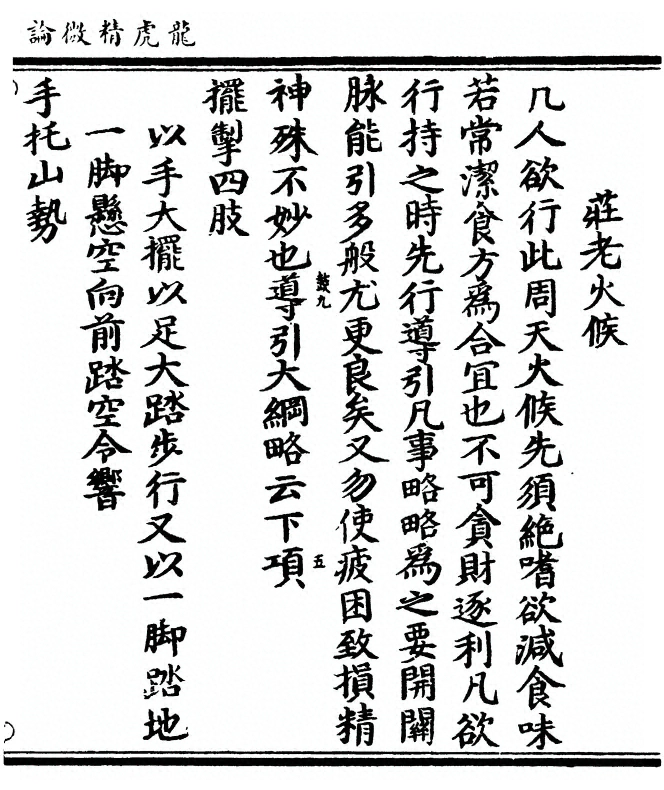 龍虎精微論
莊老火候
凡人欲行此周天火候先須絶嗜欲減食味
若常潔食方爲合宜也不可貪財逐利凡欲
行持之時先行導引凡事略略爲之要開關
脉能引多般尤更良矣又勿使疲困致損精
神殊不妙也導引大綱略云下項
鼓九
五
擺掣四肢
以手大擺以足大踏步行又以一脚踏地
一脚懸空向前踏空令響
手托山勢